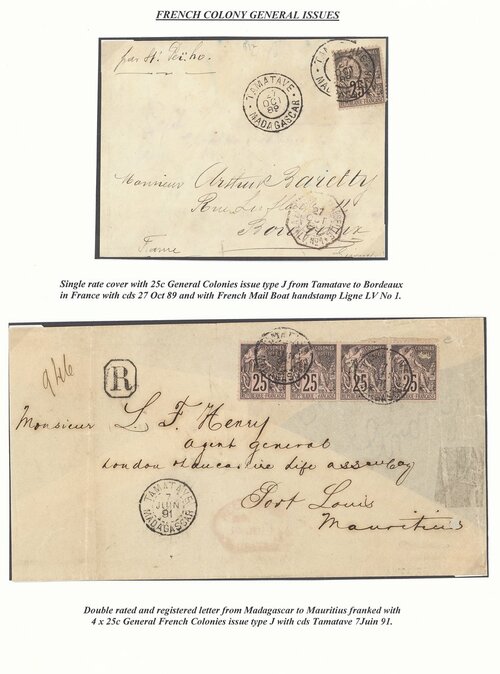 FRENCH COLONY GENERAL ISSUES
par St. Peï-ho.
TAMATAVE
27
OCT
89
MADAGASCAR
TAMATAVE
MADAGASCAR
25
Monsieur Arthur
Rue
Bordeaux
France
27
Single rate cover with 25c General Colonies issue type J from Tamatave to Bordeaux
in France with cds 27 Oct 89 and with French Mail Boat handstamp Ligne LV No 1.
946
R
COLONIES COLONIES COLONIES COLONIES
25 25 25 25
Monsieur L. F. Henry
Agent general
London & Lancashire Life Ass
Port Louis
Mauritius
TAMATAVE
7
JUIN
91
MADAGASCAR
Double rated and registered letter from Madagascar to Mauritius franked with
4 x 25c General French Colonies issue type J with cds Tamatave 7Juin 91.